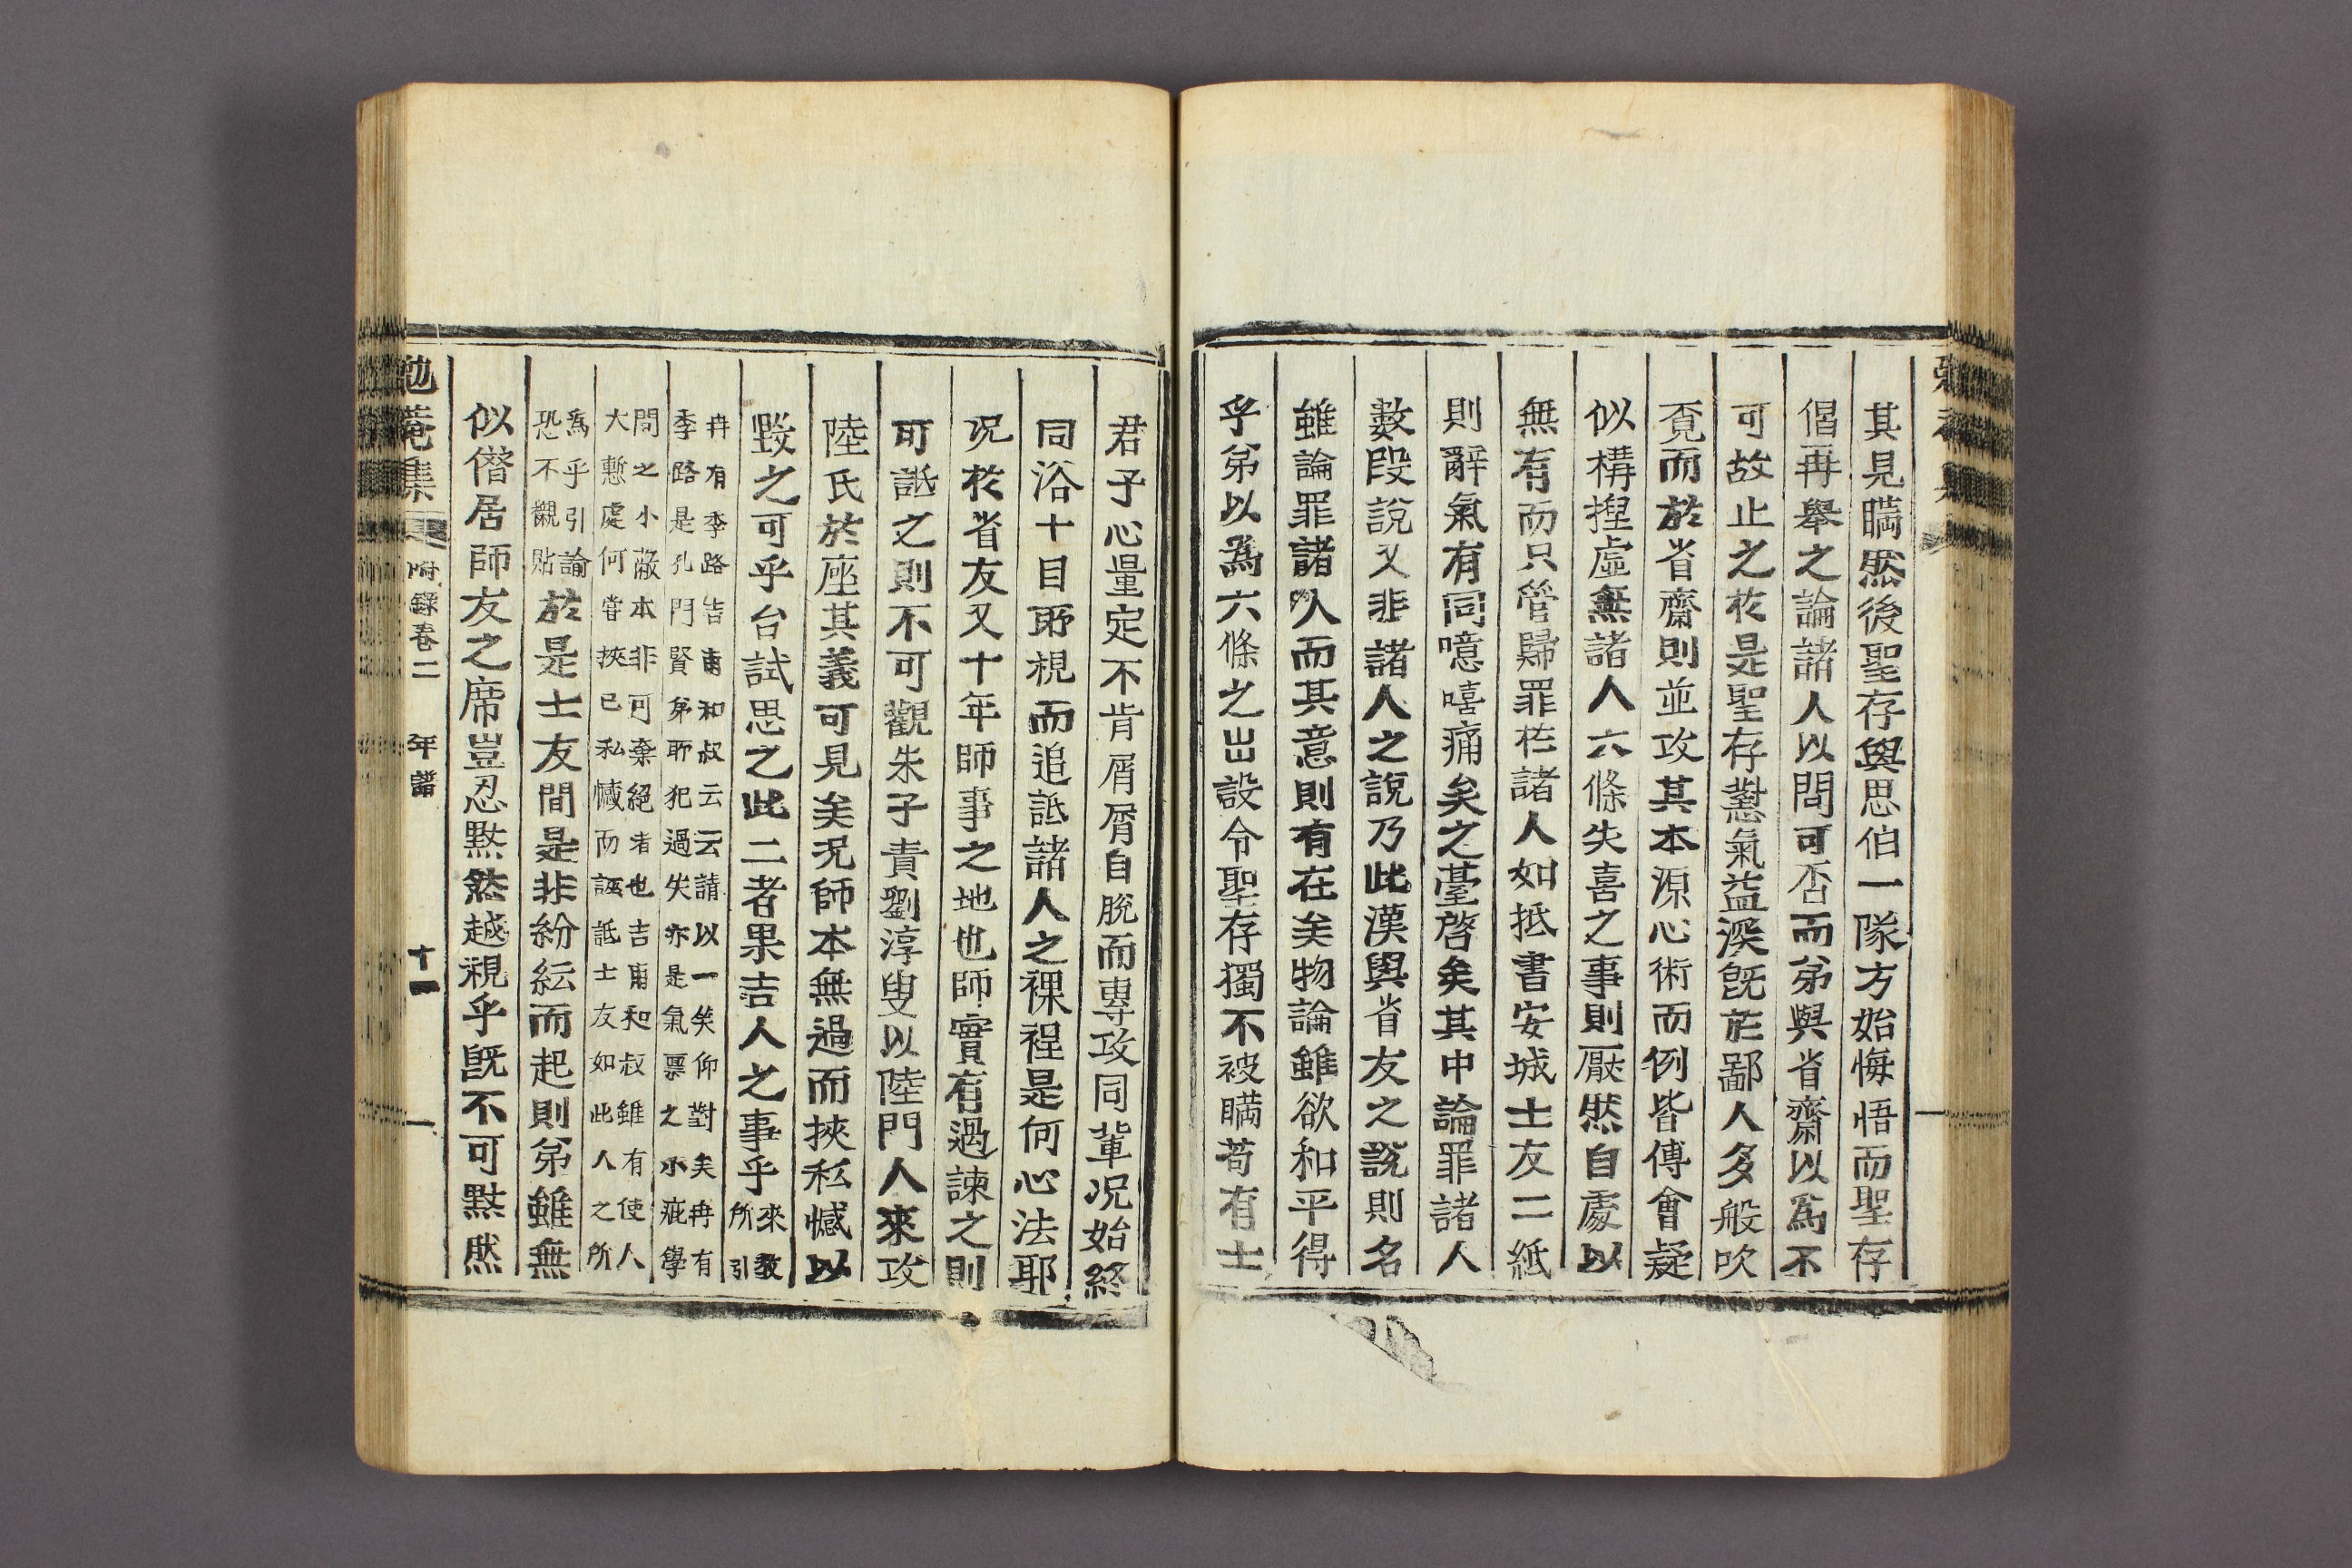 其見瞞然後聖存與思伯一隊方始悔悟而聖存
偈再舉之論諸人以問可否而弟與省齋以爲不
可故止之於是聖存懟氣益深旣於鄙人多般吹
覔而於省齋則並攻其本源心術而例皆傅會疑
似構捏虛無諸人六條失喜之事則厭然自處以
無有而只管歸罪於諸人如抵書安城士友二紙
則辭氣有同噫嘻痛矣之臺啓矣其中論罪諸人
數段說又非諸人之說乃此漢與省友之說則名
雖論罪諸人而其意則有在矣物論雖欲和平得
乎弟以爲六條之出設令聖存獨不被瞞苟有士
君子心量定不肯屑屑自脫而專攻同輩况始終
同浴十目所視而追詆諸人之裸裎是何心法耶
况於省友又十年師事之地也師實有過諫之則
可詆之則不可觀朱子責劉淳叟以陸門人來攻
陸氏於座其義可見矣况師本無過而挾私憾以
毁之可乎台試思之此二者果吉人之事乎來敎所引
冉有季路吉甫和叔云云請以一矣仰對矣冉有
季路是孔門賢弟所犯過失亦是氣禀之小疵學
問之小蔽本非可棄絕者也吉甫和叔雖有使人
大慙處何甞挾已私憾而誣詆士友如此人之所
爲乎引諭恐不襯貼於是士友間是非紛紜而起則弟雖無
似僭居師友之席豈忍默然越視乎旣不可默然
勉菴集
附錄卷二
年譜
十一